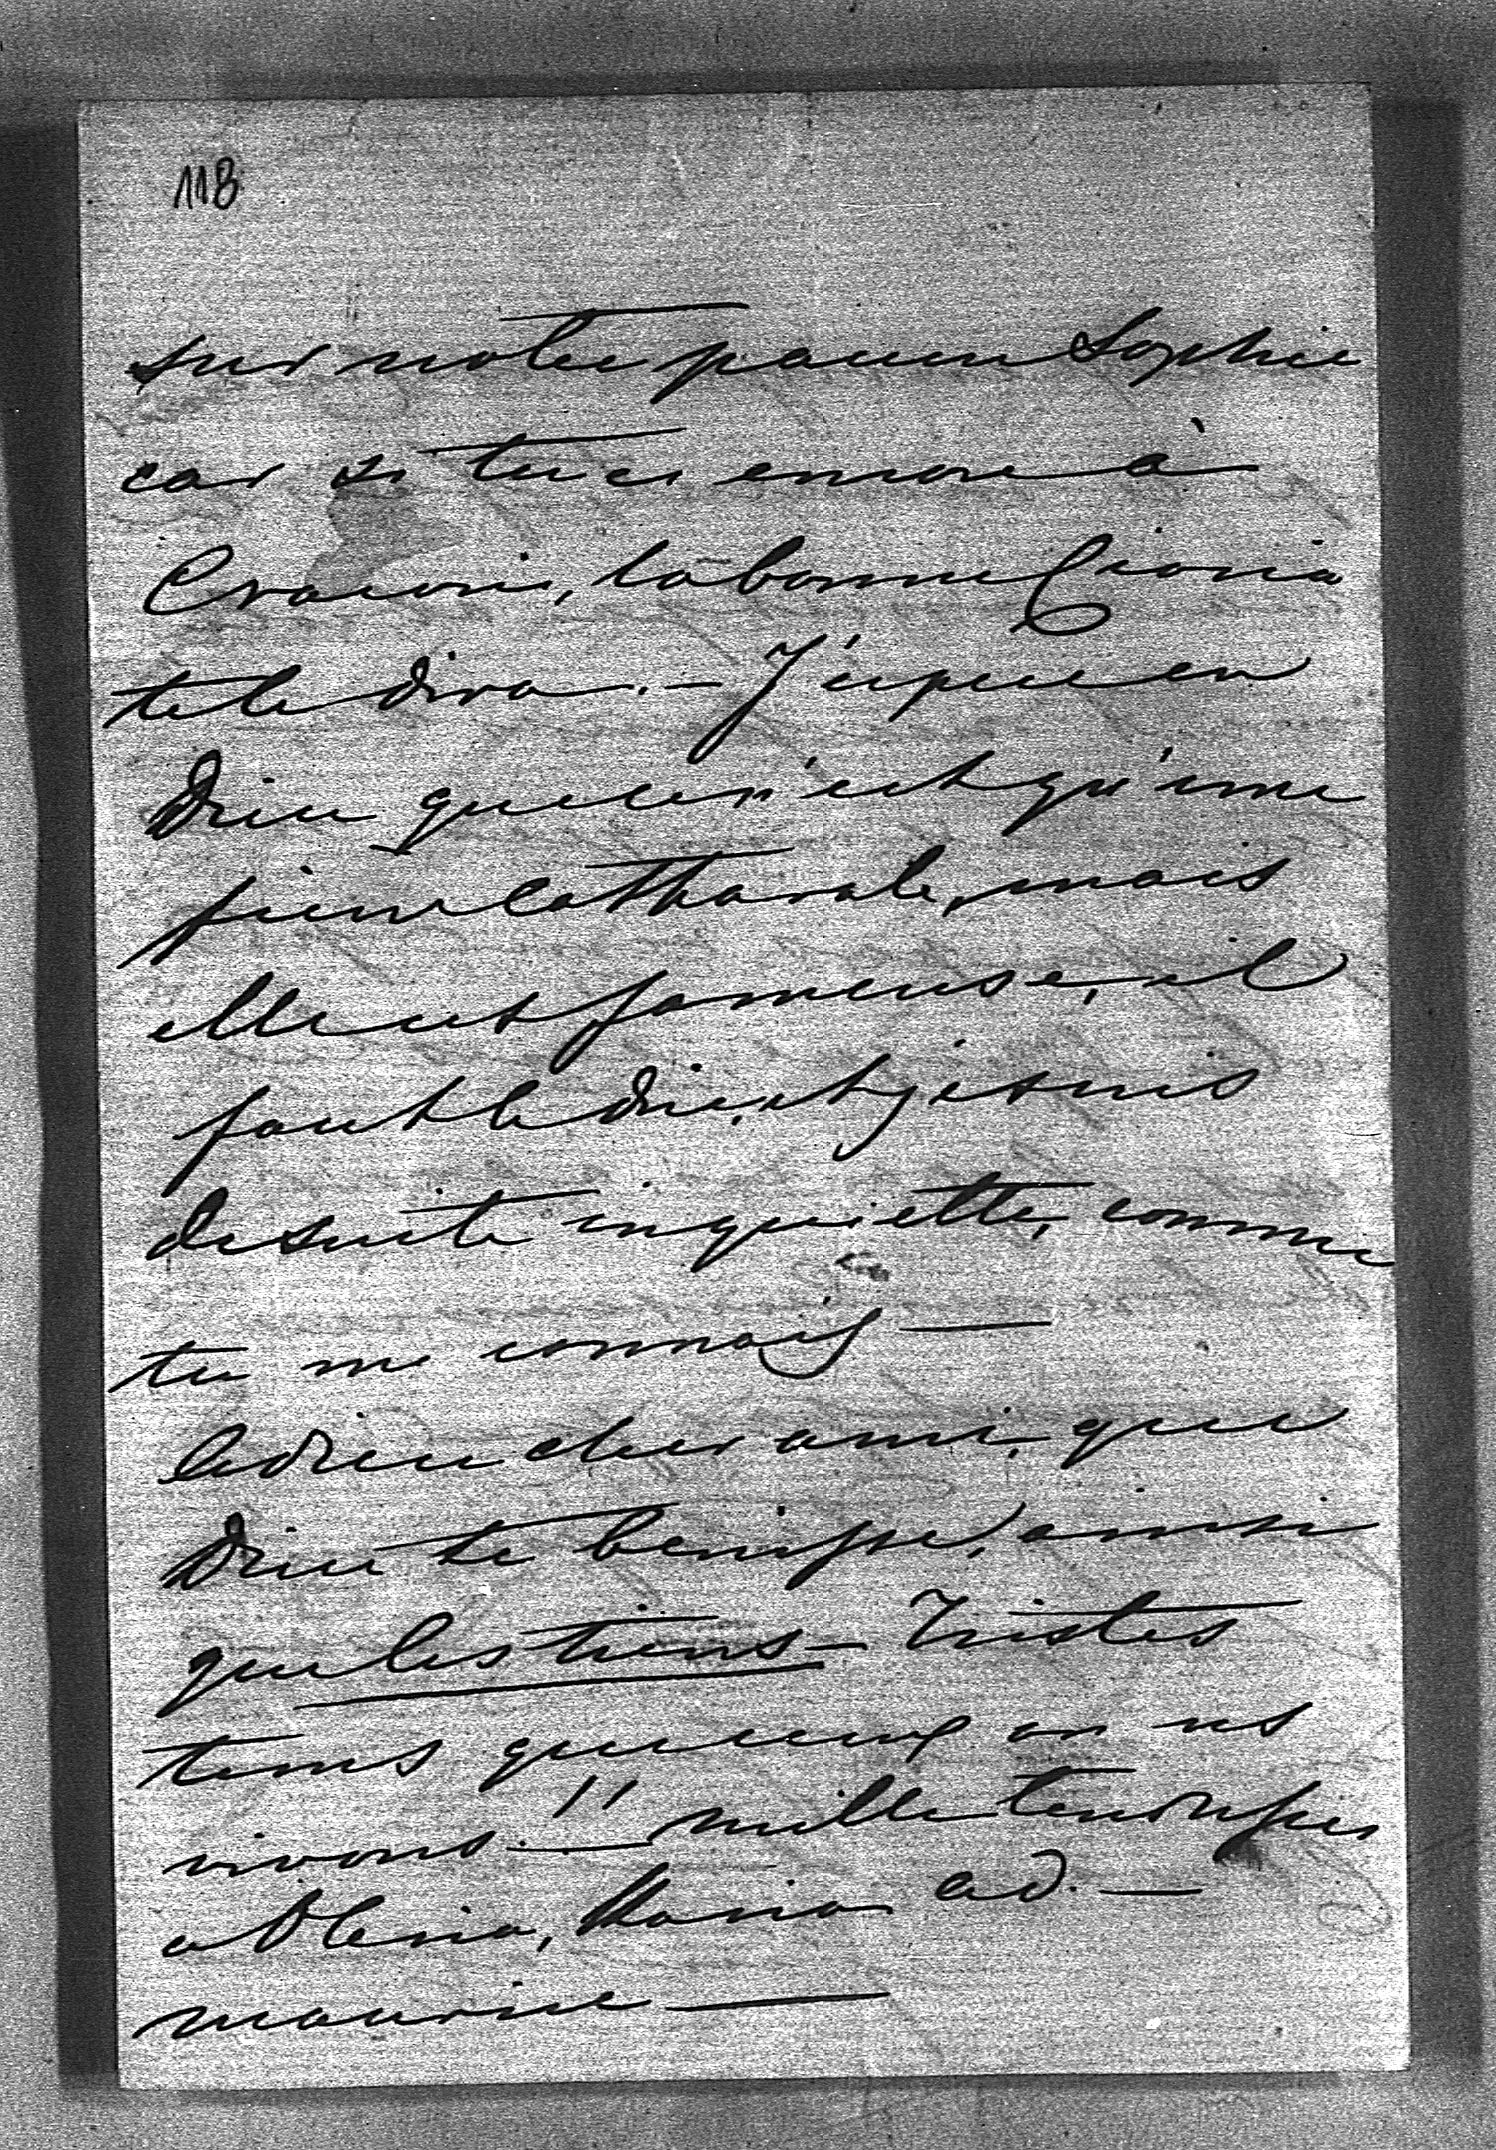 118
sur notre pauvre Sophie
car si tu es encore à
Cracovie, la bonne Ciocia
te le dira. — J'espère en
Dieu que ce n'est qu'une
fièvre catharale, mais
elle est fameuse, il
faut le dire, et je suis
de suite inquiette, comme
tu me connais —
Adieu cher ami, que
Dieu te benisse, ainsi
que les tiens — Tristes
tems que ceux où ns
vivons!! — mille tendresses
a Olenia, Ad. —
Maurice —